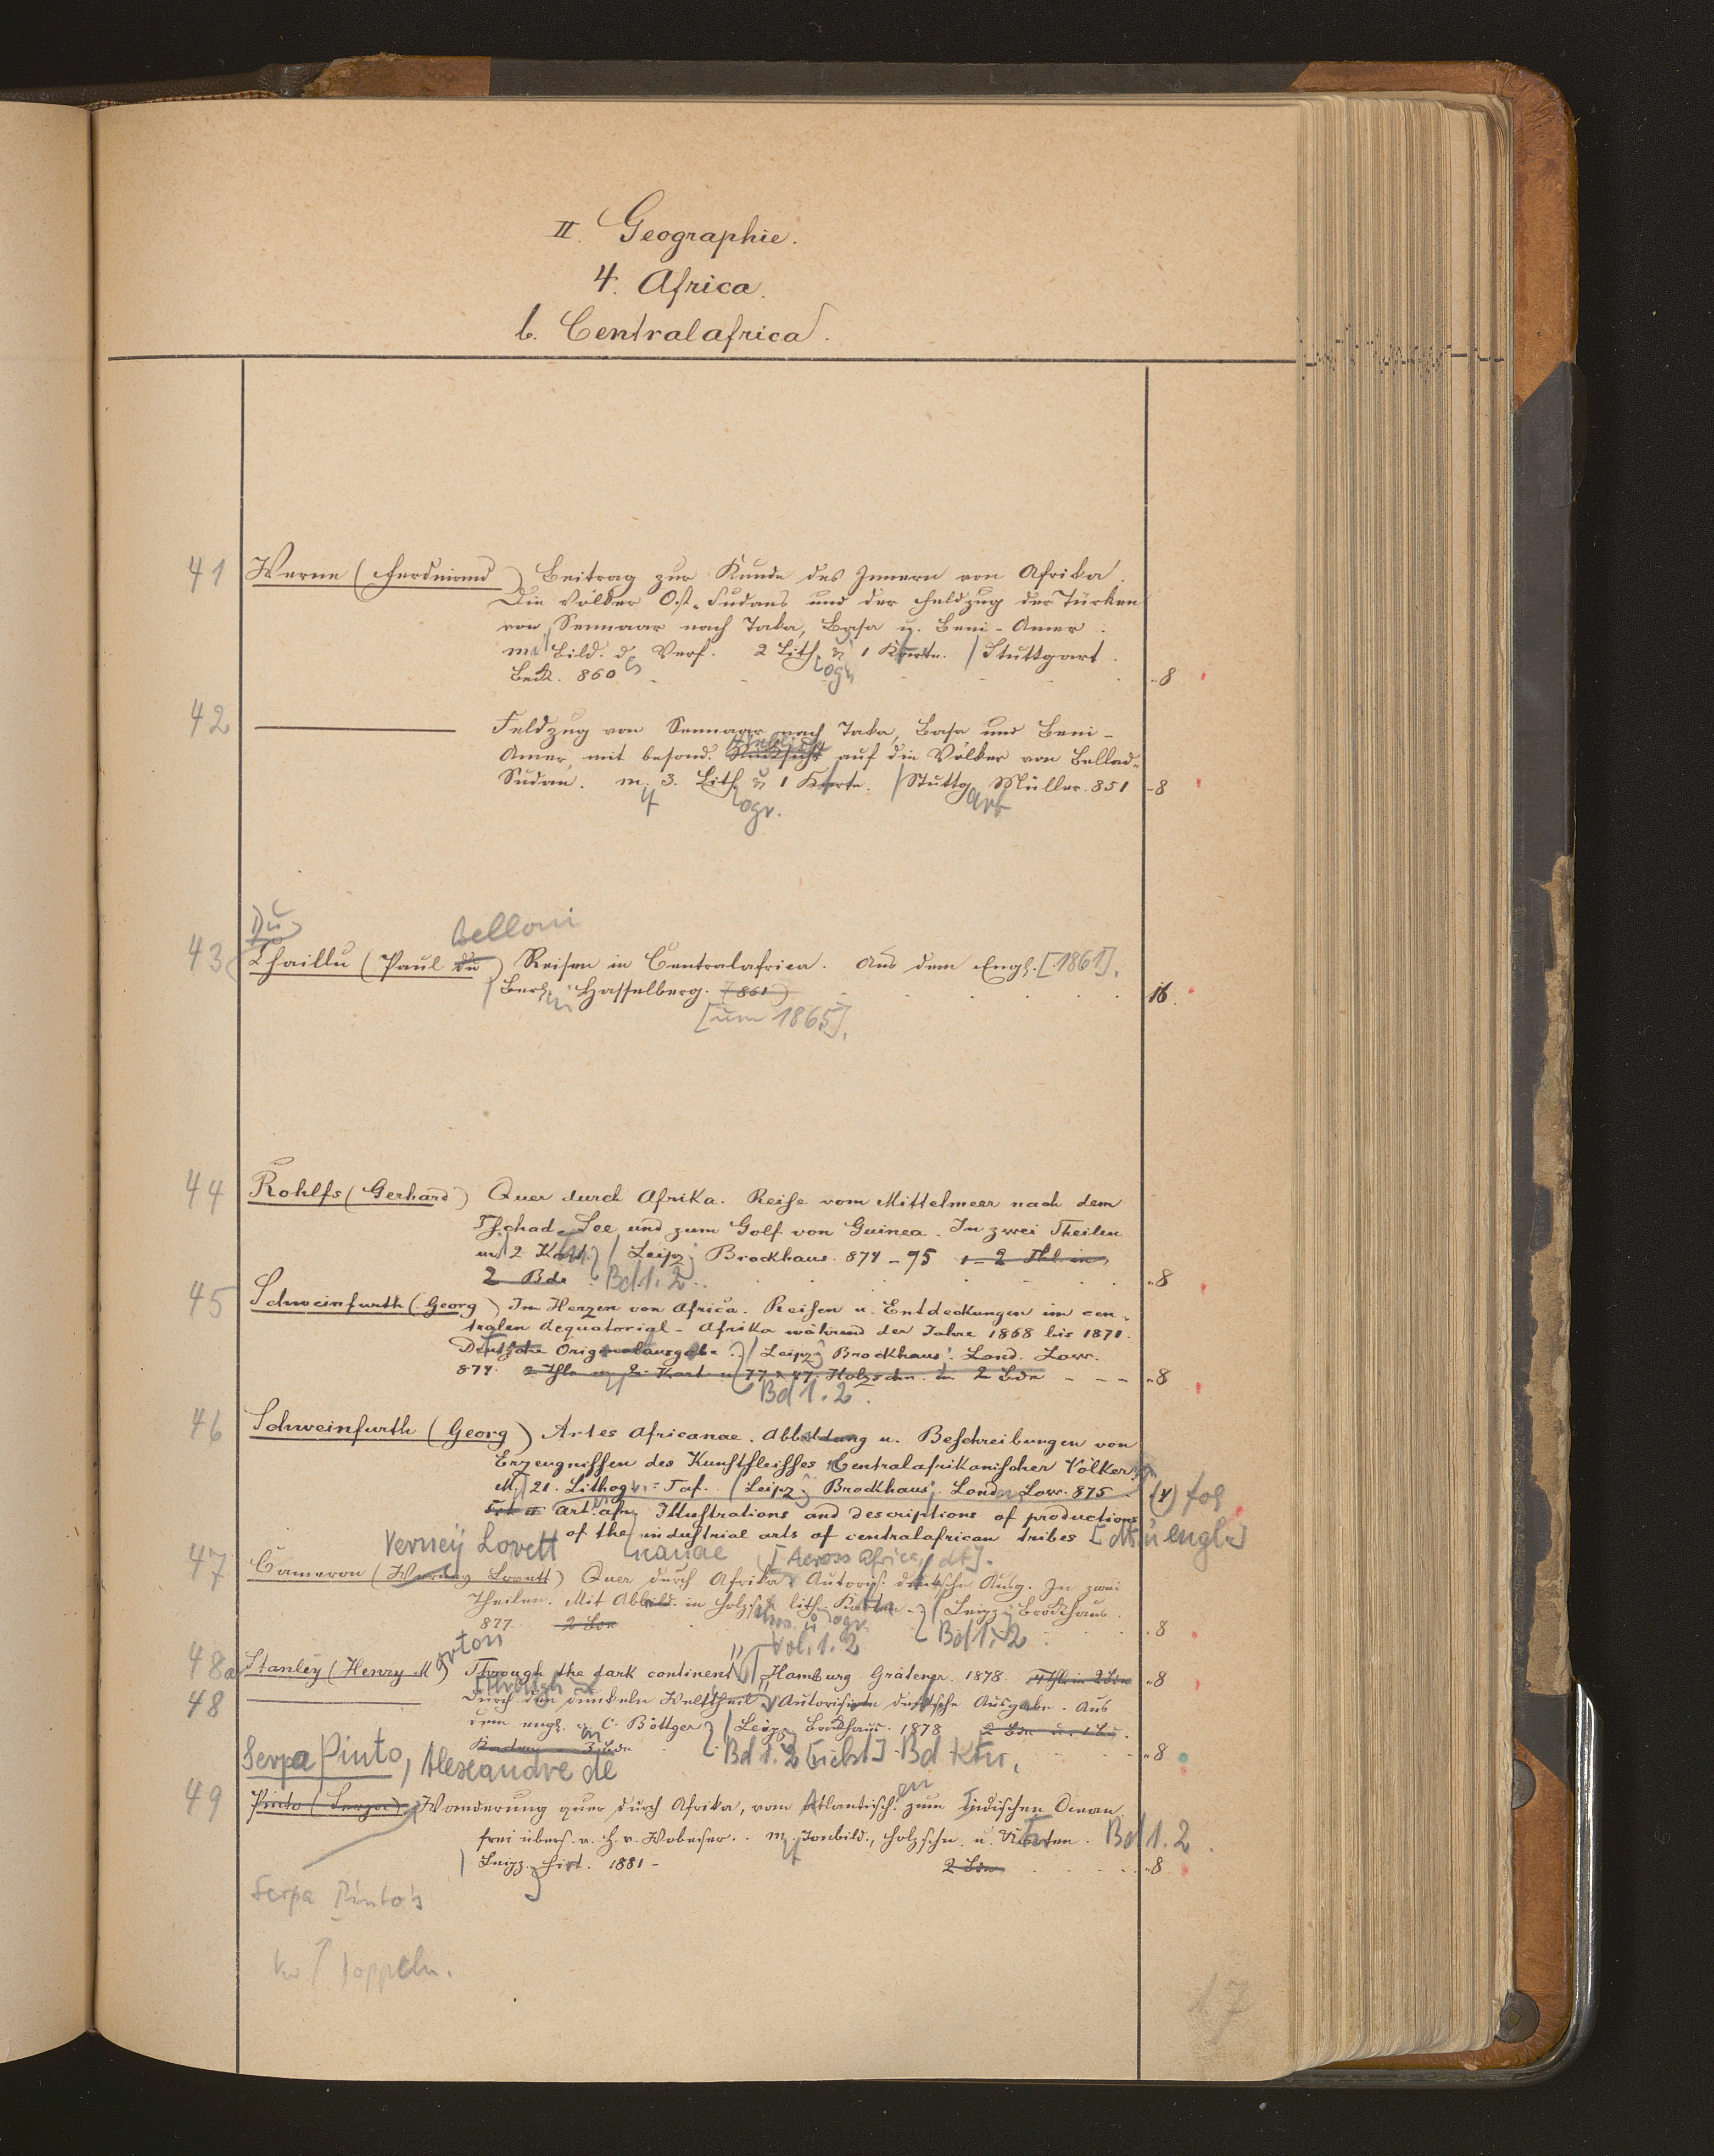 II. Geographie.
4. Africa.
b. Centralafrica.
41 Werne (Ferdinand) Beitrag zur Kunde des Innern von Afrika.
Die Völker Ost-Sudans und der Feldzug der Türken
von Sennaar nach Taka, Basa u. Beni-Amer.
Bild. d. Verf. 2 Lithogr. u 1 Karte. / Stuttgart.
Beck. 860 -8
42 ——— Feldzug von Sennaar nach Taka, Basa und Beni-
Amer, mit besond. Hinblick auf die Völker von Bellad-
Sudan. m. 3. Lithogr. u 1 Karte. / Stuttgart Müller. 851 -8
Du Belloni
43 Chaillu (Paul du) Reisen in Centralafrica. Aus dem Engl. [1861].
Berlin Hasselberg. (861) 16.
[um 1865].
44 Rohlfs (Gerhard) Quer durch Afrika. Reise vom Mittelmeer nach dem
Tschad-See und zum Golf von Guinea. In zwei Theilen
m 2 Kart. / Leipz. Brockhaus. 874-75 2 Thl. in
2 Bde Bd 1. 2. -8
45 Schweinfurth (Georg) Im Herzen von Africa. Reisen u. Entdeckungen im cen-
tralen Aequatorial-Afrika während der Jahre 1868 bis 1871.
Deutsche Originalausgabe. / Leipz. Brockhaus. Lond. Low.
874. 2 Thle m 2 Kart. u 77 + 47 Holzschn. in 2 Bdn - - - -8
Bd 1. 2.
46 Schweinfurth (Georg) Artes Africanae. Abbildung u. Beschreibungen von
Erzeugnissen des Kunstfleisses Centralafrikanischer Völker
M. 21. Lithogr. Taf. / Leipz. Brockhaus. Lond. Low. 875. (4) fol
Tit II Art. afr. Illustrations and descriptions of productions
of the industrial arts of centralafrican tribes [dt. u engl.]
Verney Lovett nanae [Across Africa, dt].
47 Cameron (Verney Lovett) Quer durch Afrika. Autoris. deutsche Ausg. In zwei
Theilen. Mit Abbild. in Holzschn. u lithogr. Karten. / Leipz. Brockhaus.
877. 2 Bde Bd 1. 2 -8
orton Vol. 1. 2
48a Stanley (Henry M) Through the dark continent / Hamburg. Grädener. 1878. 4 Thle in 2 Bdn -8
[Through
48 ——— Durch den dunkeln Welttheil. Autorisirte deutsche Ausgabe. Aus
dem engl. v. C. Böttger / Leipz. Brockhaus. 1878 2 Bde
Karten 3 Bde Bd 1. 2 [nebst] Bd Ktn. -8
Serpa Pinto, Alexandre de
49 Pinto (Serpa) Wanderung quer durch Afrika, vom Atlantischen zum Indischen Ocean.
frei übers. v. H. v. Wobeser. m. Tonbild., Holzschn. u. Karten. Bd 1. 2.
Leipz. Hirt. 1881- 2 Bde -8
Serpa Pinto's
doppeln.
17